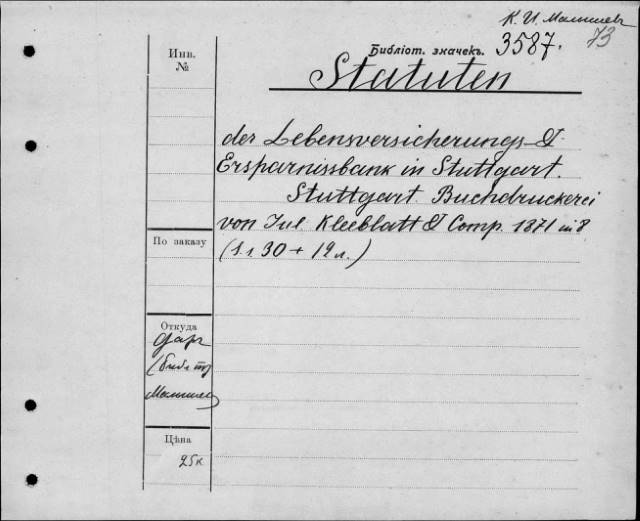 К. И. Малышев
73
Библіот. значекъ. 3587.
Инв.
№
Statuten
der Lebensversicherungs- &
Ersparnissbank in Stuttgart.
Stuttgart Buchdruckerei
von Jul Kleeblatt & Comp. 1871 in 8
(1. s. 30 + 12 л.)
По заказу
Откуда
Даръ
(библ
Малышев
Цѣна
25к